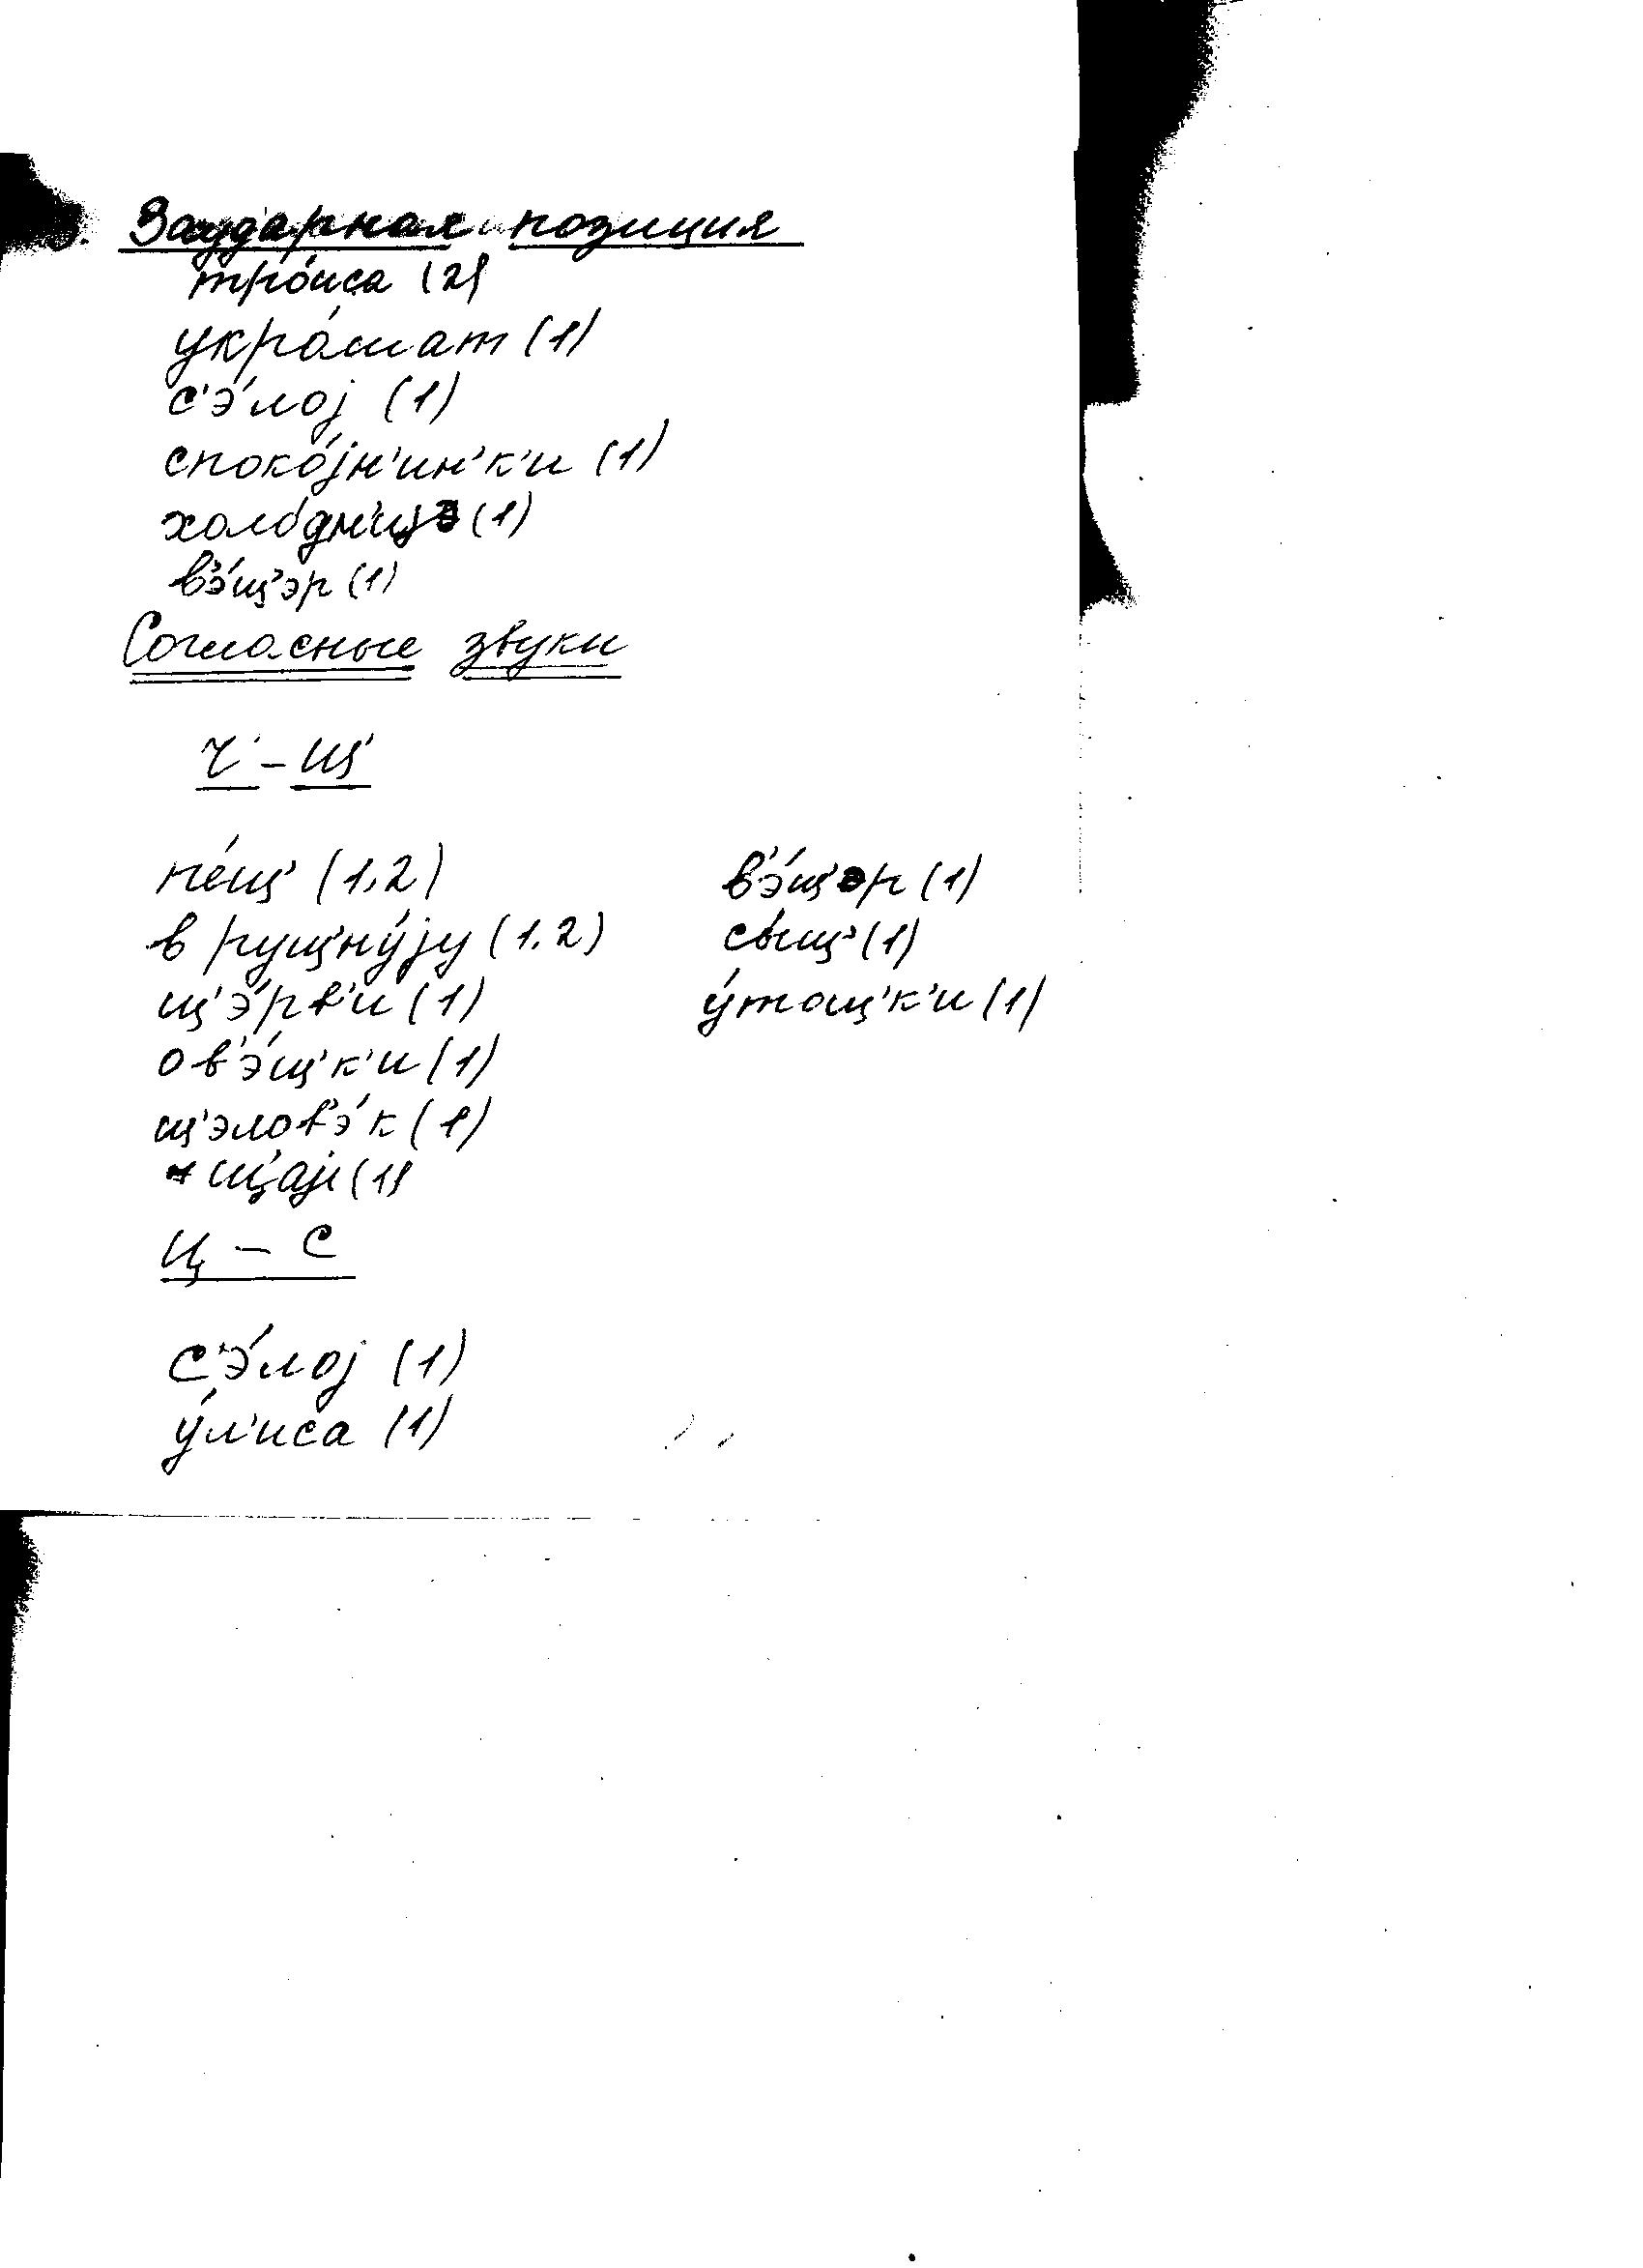 3. Заударная позиция
тро́иса (2)
укра́шат (1)
с'э́лој (1)
споко́јн'ин'к'и (1)
холо́дн'иц (1)
в'э́щ'эр (1)
Согласные звуки
Ч' - Щ'
пéщ' (1,2)
в рущ'ну́ју (1,2)
щ'э́рв'и (1)
ов'э́щ'к'и (1)
щ'элов'э́к (1)
щ'ај (1)
в'э́щ'эр (1)
сы́щ' (1)
у́тощ'к'и (1)
Ц - С
с'э́лој (1)
у́л'иса (1)